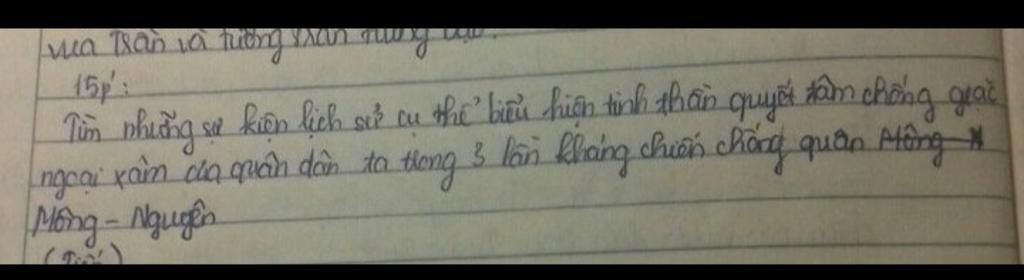 vua Trần và tướng Trần
15p':
Tìm những sự kiện lịch sử cụ thể biểu hiện tinh thần quyết tâm chống giặc
ngoại xâm của quân dân ta trong 3 lần kháng chiến chống quân Mông
Mông - Nguyên